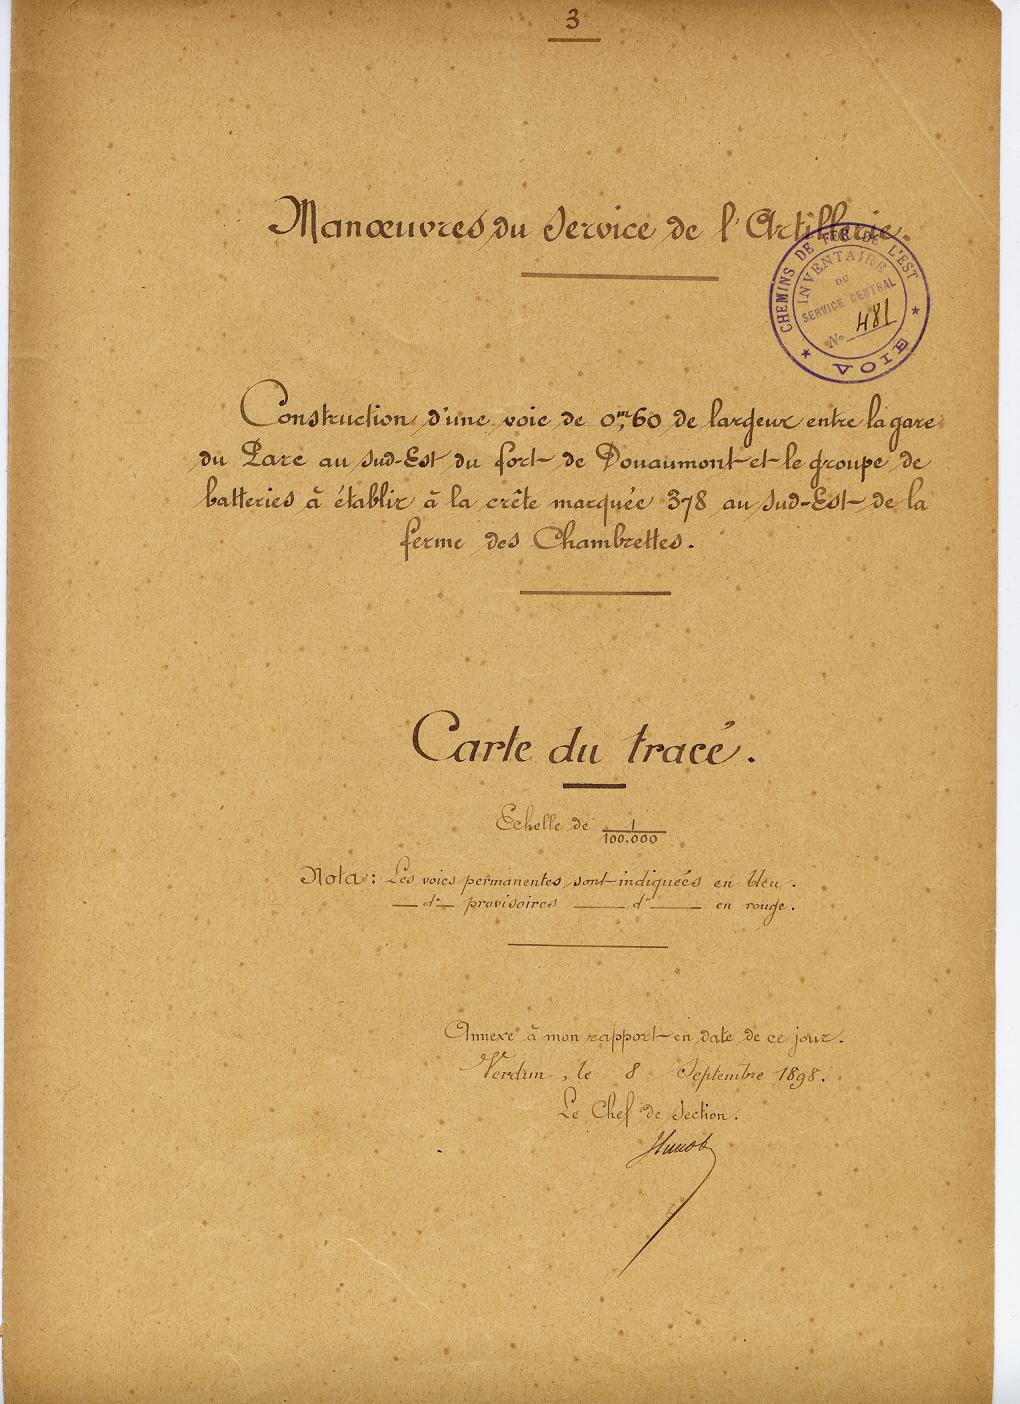 3
Manœuvres du Service de l'Artillerie.
CHEMINS DE FER DE L'EST
INVENTAIRE
DU
SERVICE CENTRAL
N° 481
★ VOIE ★
Construction d'une voie de 0m,60 de largeur entre la gare
du Parc au Sud-Est du fort de Douaumont et le groupe de
batteries à établir à la crête marquée 378 au Sud-Est de la
ferme des Chambrettes.
Carte du tracé.
Echelle de 1/100.000
Nota: Les voies permanentes sont indiquées en bleu.
— d° — provisoires — d° — en rouge.
Annexe à mon rapport en date de ce jour.
Verdun, le 8 Septembre 1898.
Le Chef de Section.